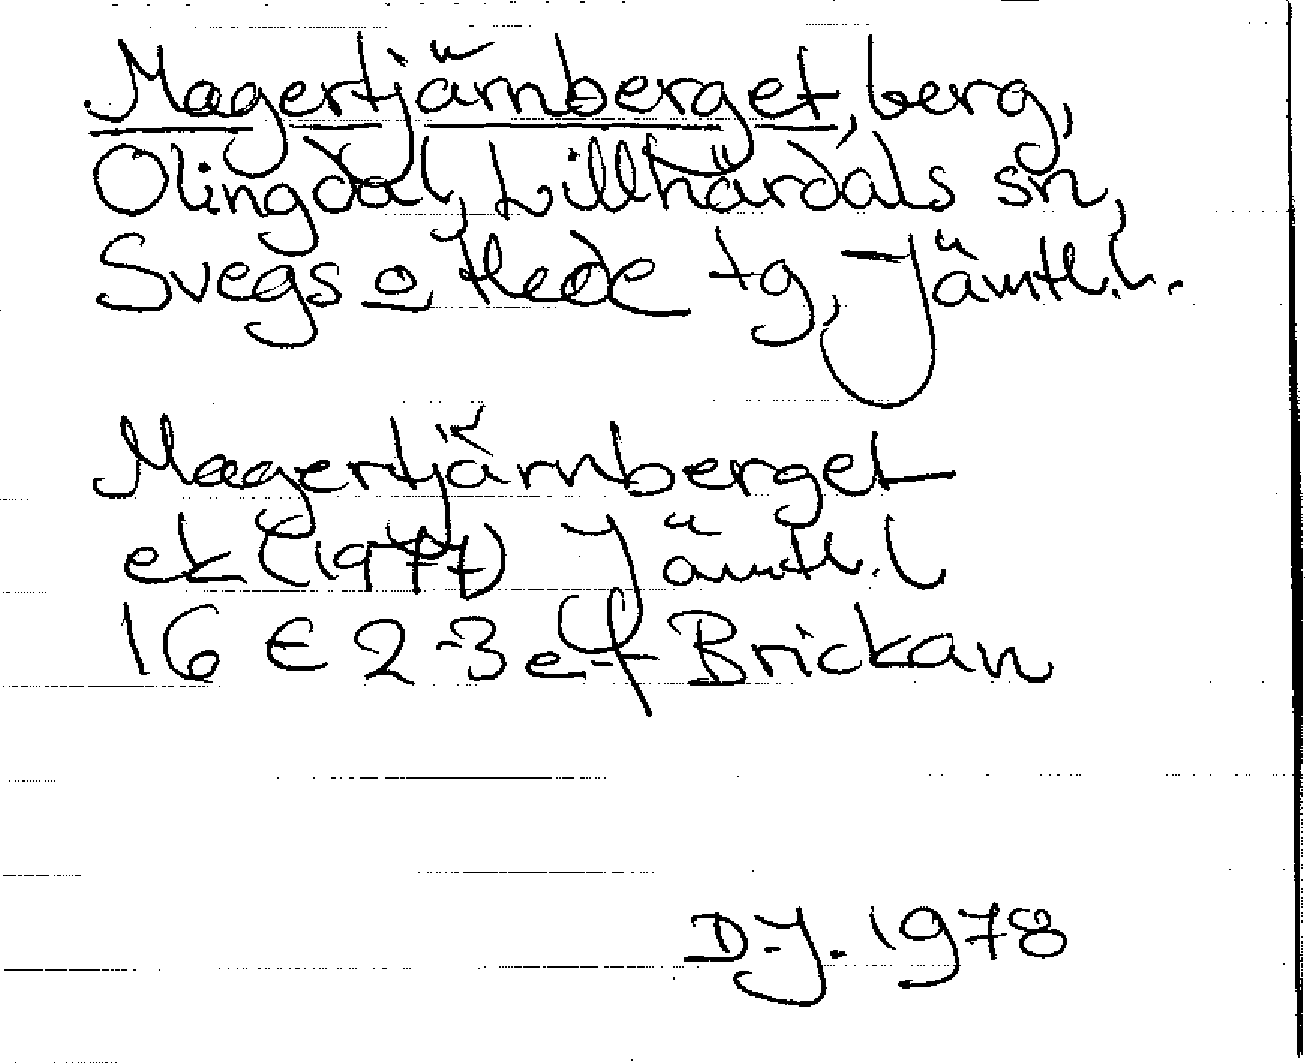 Magertjärnberget, berg,
Olingdal, Lillhärdals sn,
Svegs o Hede tg, Jämtl.l.
Magertjärnberget
ek (1977) Jämtl.l
16 E 2-3 e-f Brickan
D.J. 1978